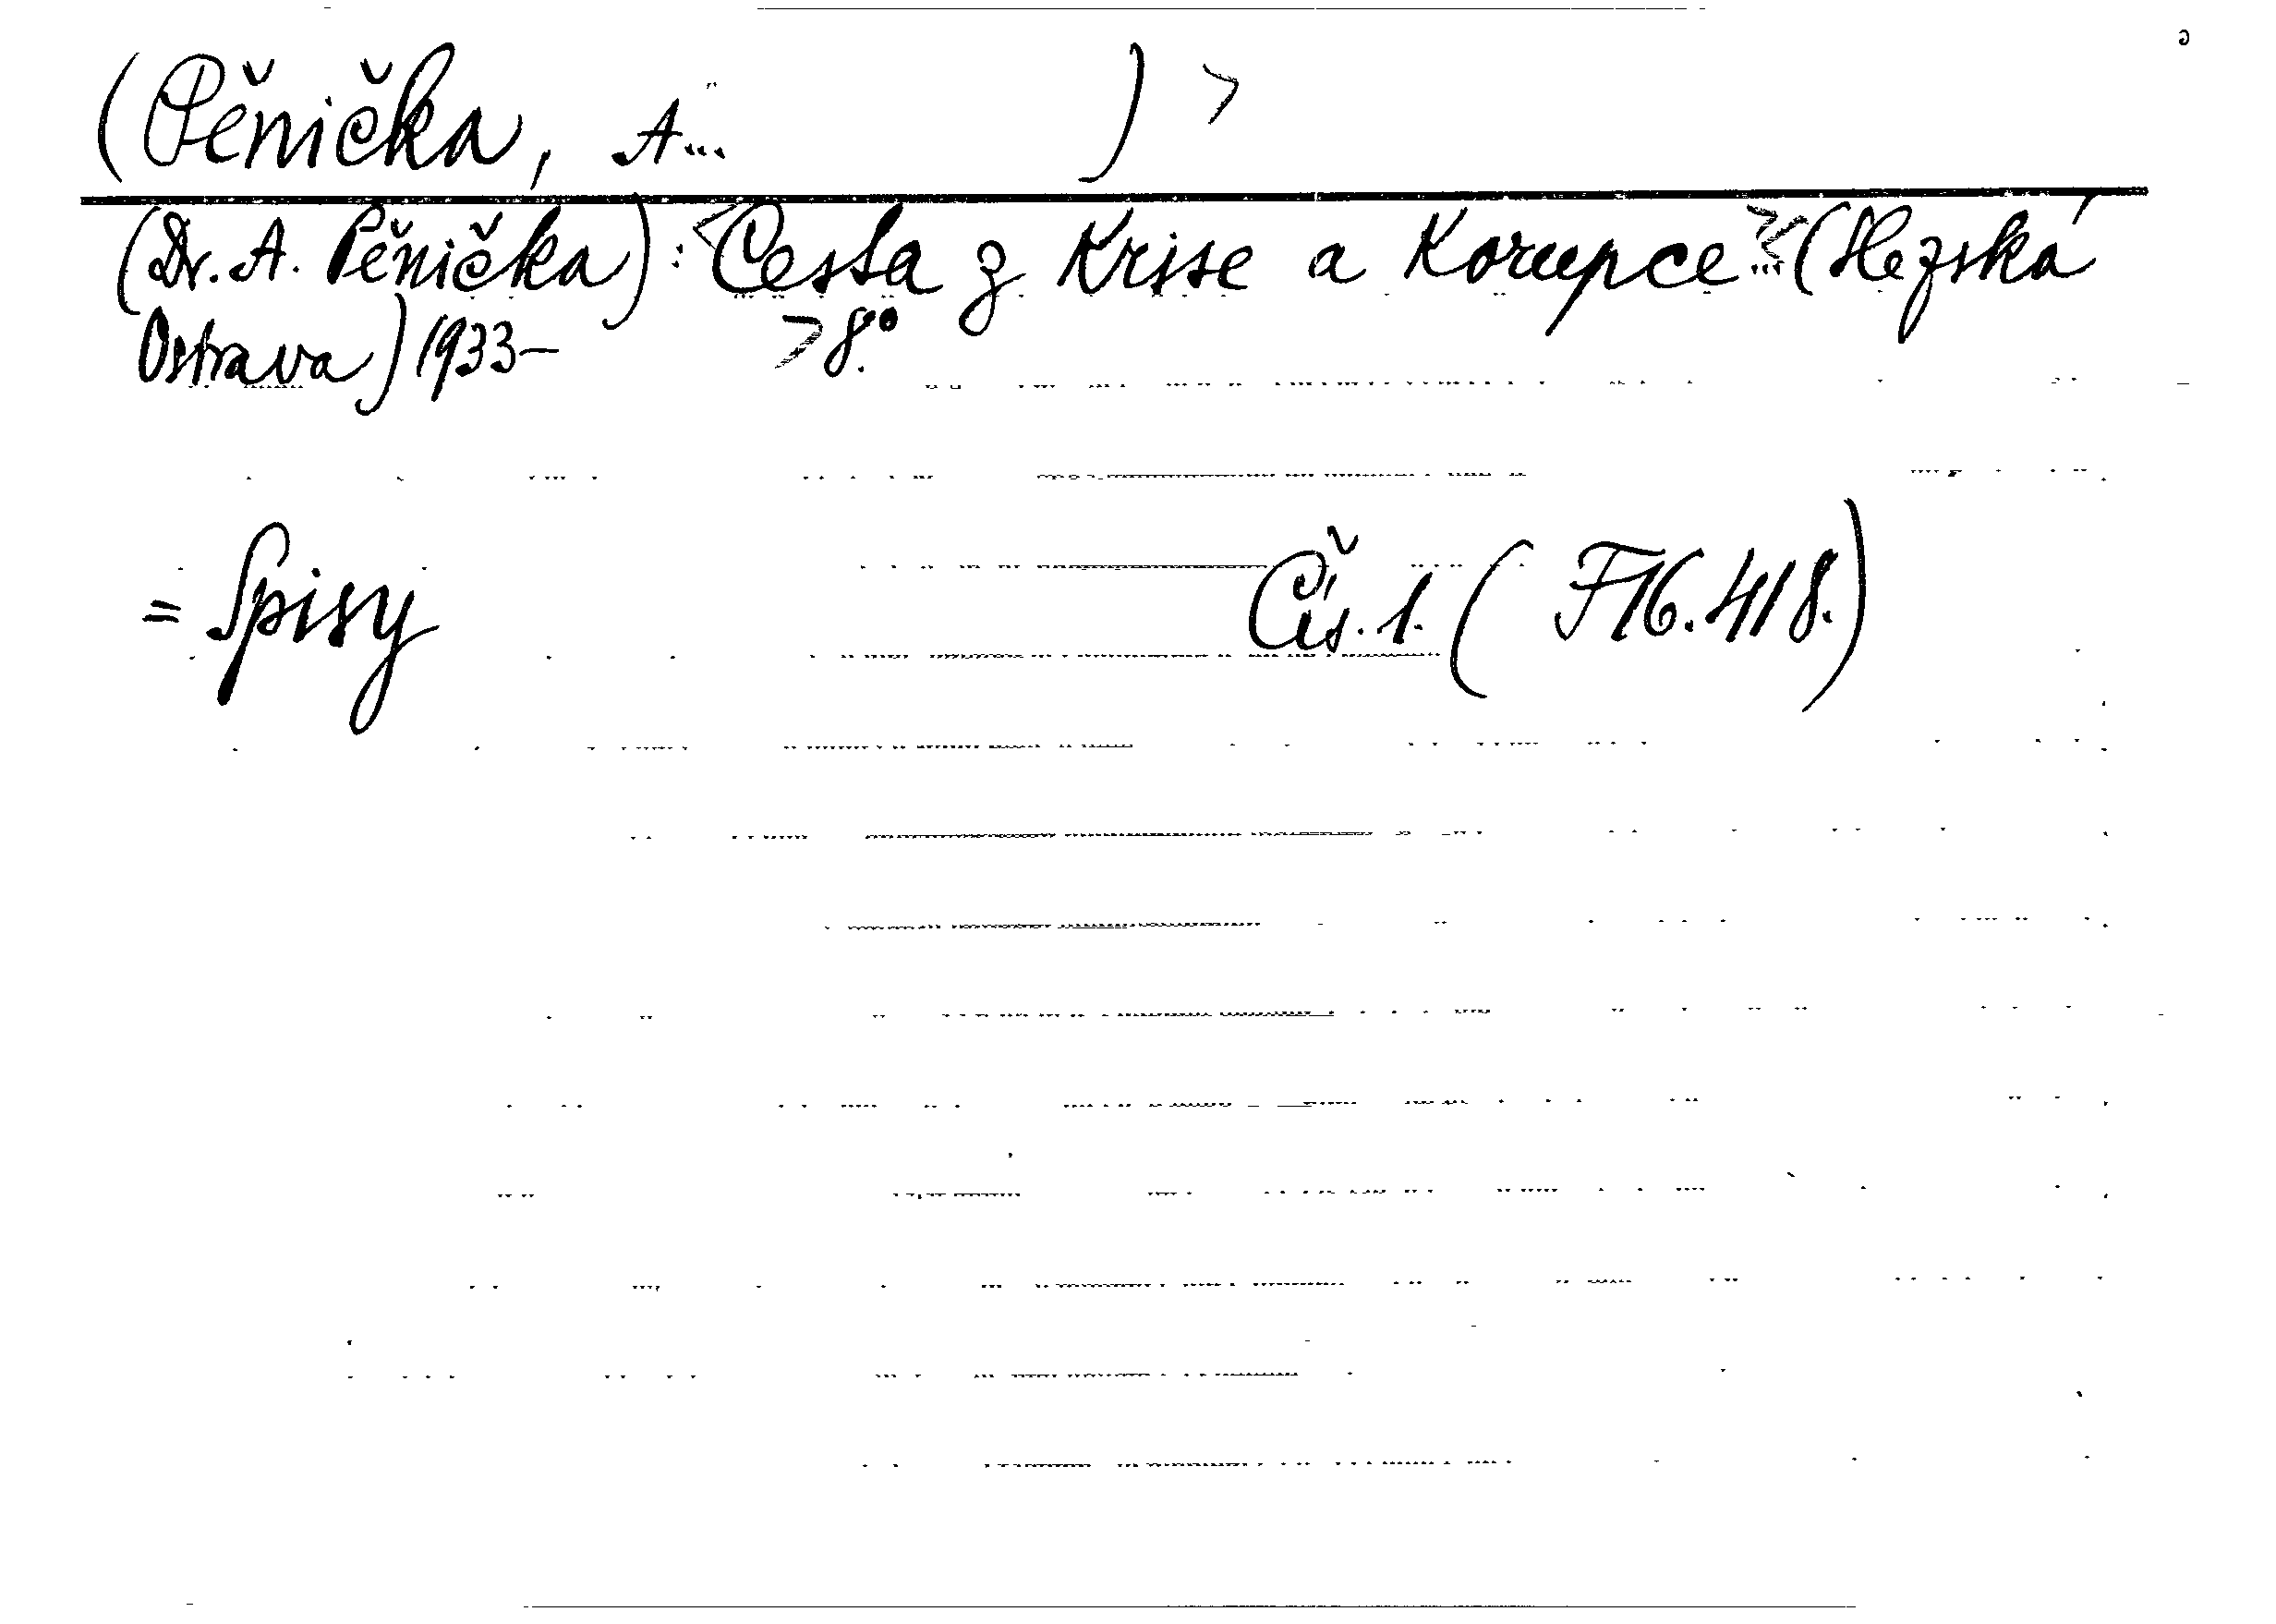 (Pěnička, A... ) >
(Dr. A. Pěnička): <Cesta z Krise a Korupce...> (Slezská
Ostrava) 1933- > 8.°
= Spisy Čís. 1. ( F16.418.)